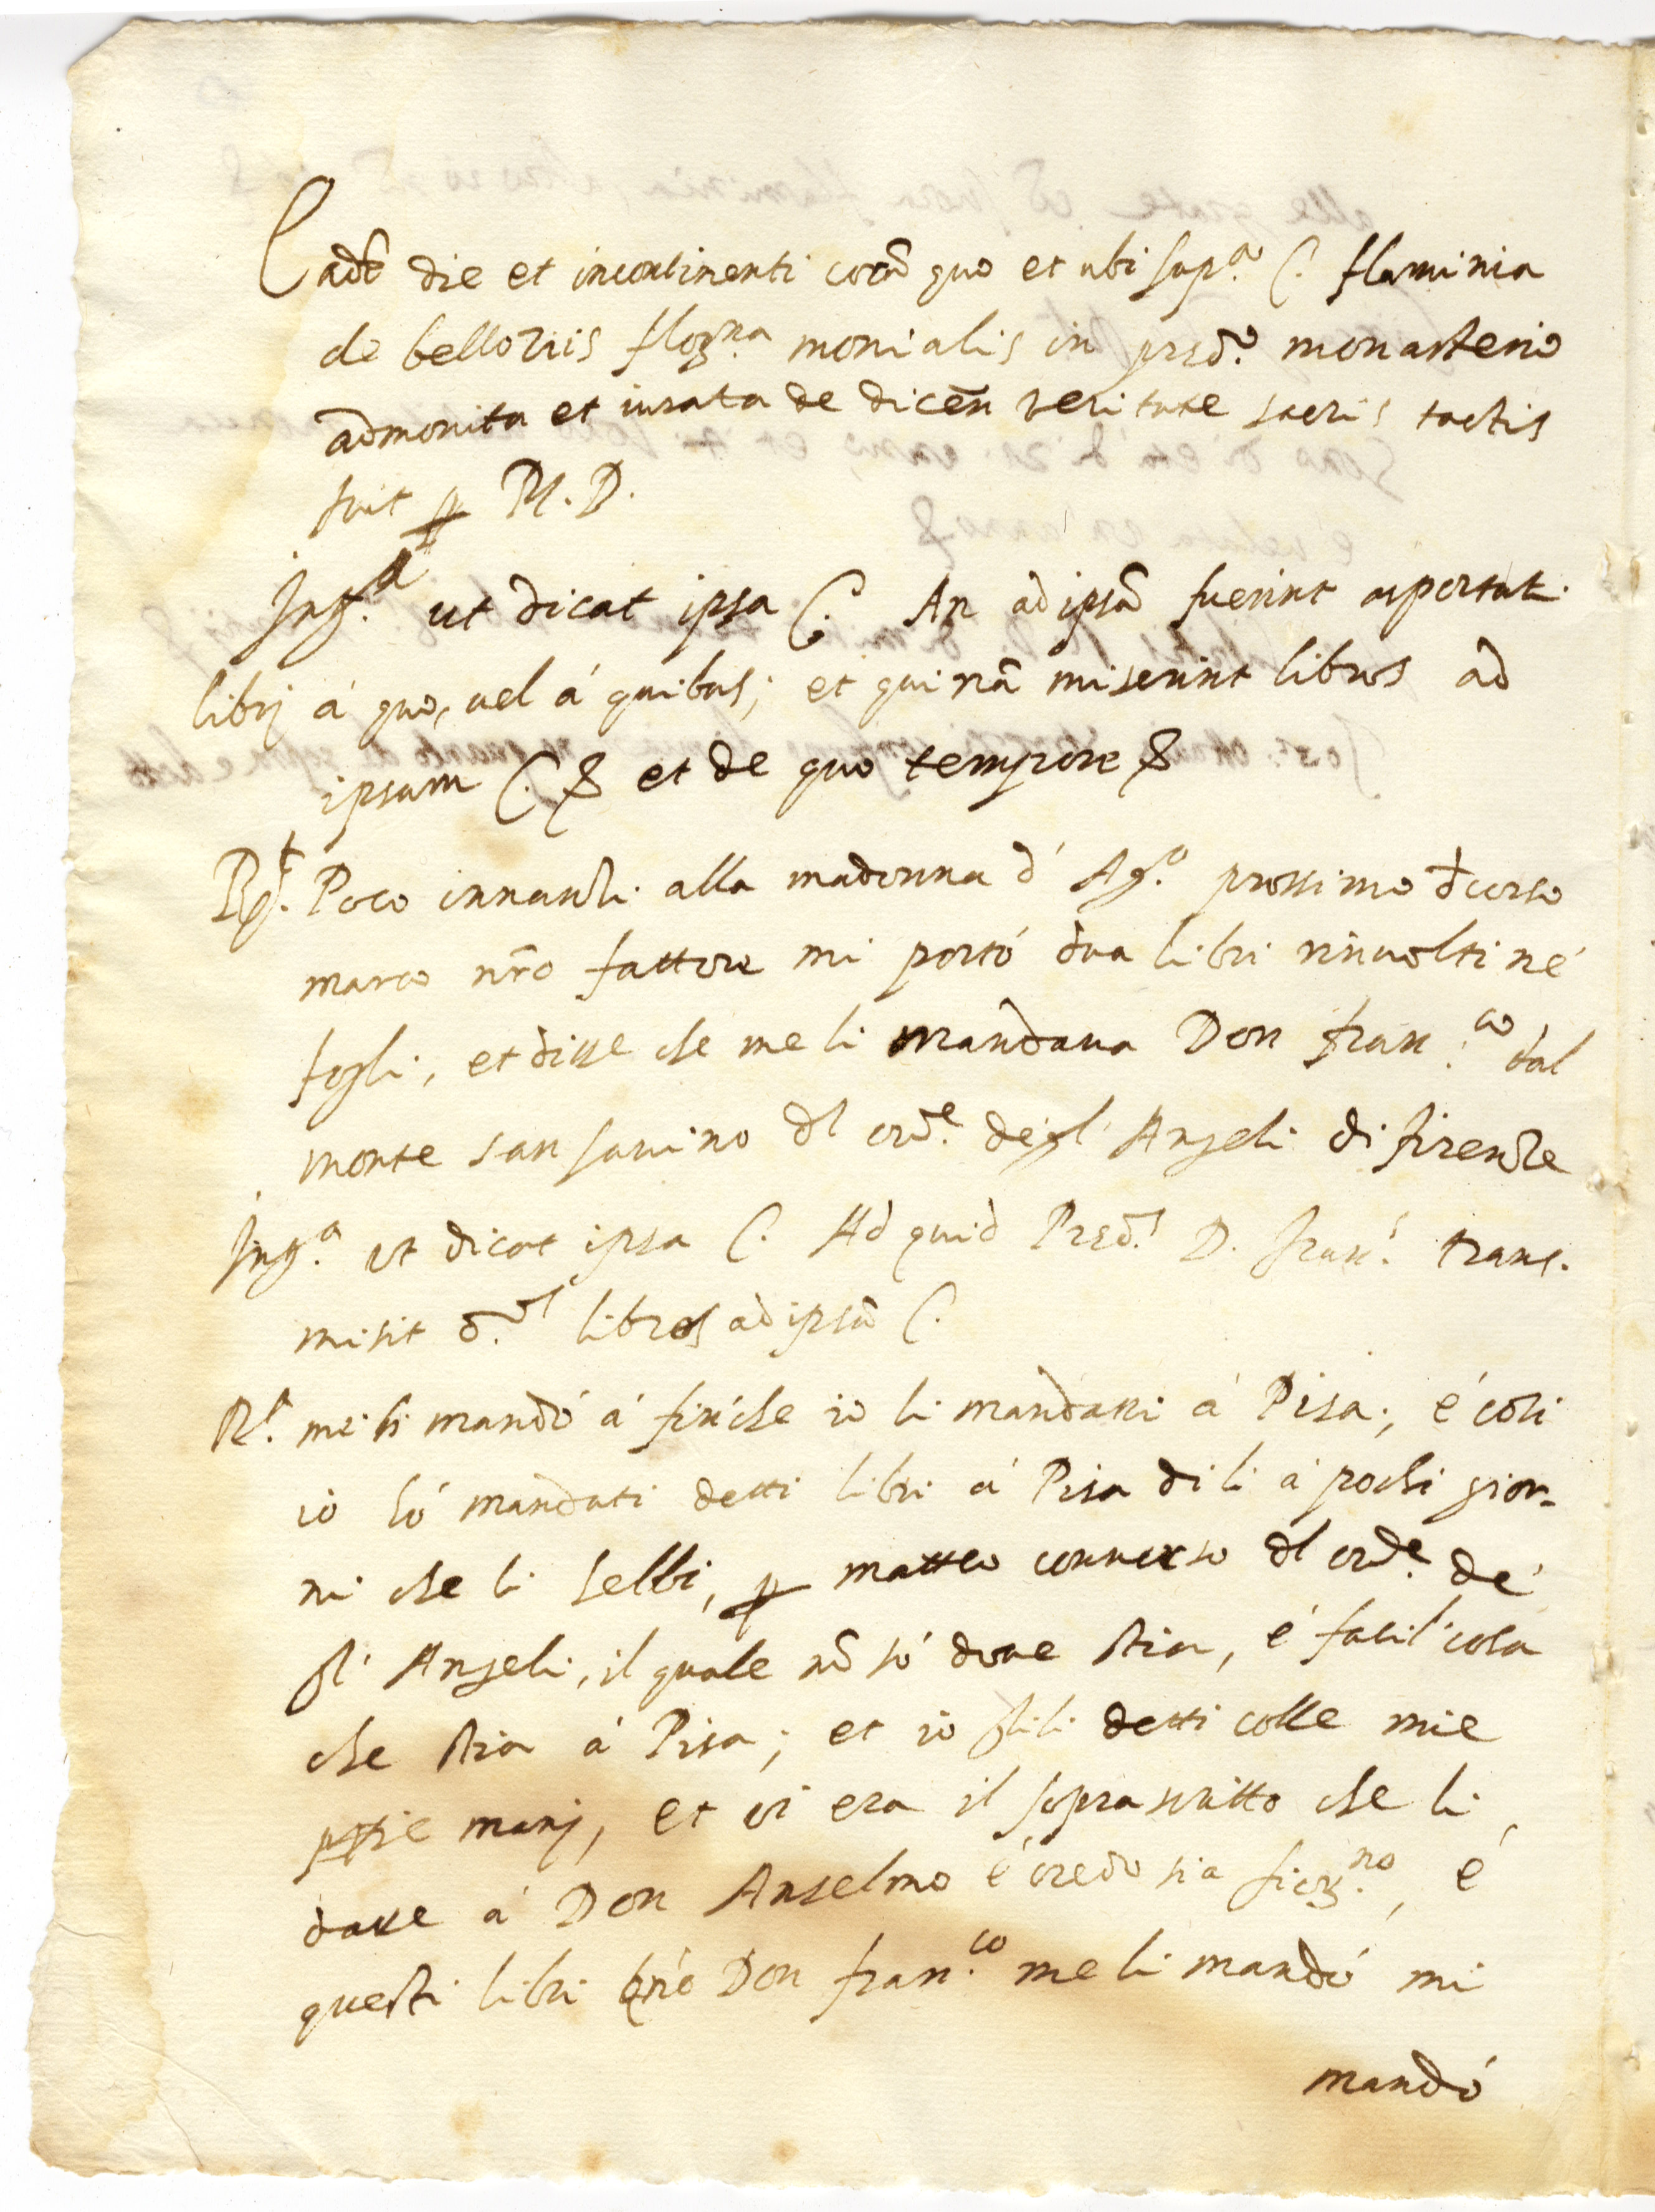 Eadē die et incontinenti corā quo et ubi sup.ª C. flaminia
de bellociis flor.na monialis in pred.º monasterio
admonita et iurata de dicēn veritate sacris tactis
fuit p M. D.
Int.ª ut dicat ipsa C. An ad ipsā fuerint asportat.
librj á quo, uel á quibus; et qui nā miserint libros ad
ipsam C. & et de quo tempore &
Rt. Poco innanzi alla madonna d' Ag.º prossimo dcorso
marco nr̄o fattore mi portó dua libri rinuolti ne'
fogli, et disse che me li mandaua Don fran.co dal
monte san sauino dl ord.e degl' Angeli di firenze
Int.ª ut dicat ipsa C. Ad quid Pred.s D. fran.s trans.
misit d.os libros ad ipsā C.
Rt. me li mandó á fin'che io li mandassi á Pisa; é cosi
io hó mandati detti libri á Pisa di li á pochi gior-
ni che li hebbi, p matteo conuerso dl ord.e de
gl' Angeli, il quale nō só doue stia, é facil' cosa
che stia á Pisa; et io glili detti colle mie
pprie manj, et vi era il soprascritto che li
dasse á Don Anselmo é credo sia fior.no, é
questi libri Don fran.co me li mandó mi
mandó